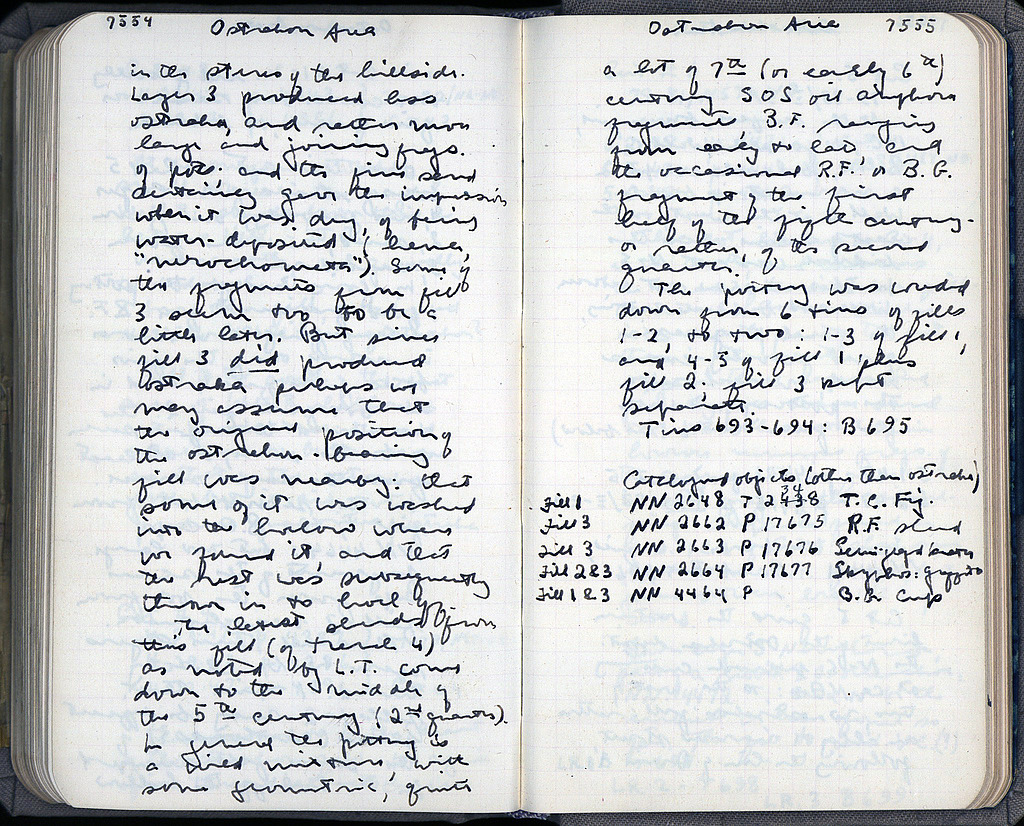 7554 Ostrakon Area
in the stereo of the hillside.
Layer 3 produced less
ostraka, and rather more
large and joining frags.
of pots. and the fine sand
certainly gave the impression
when it was dry, of being
water-deposited; hence
"nerochomata"). Some of
the fragments from fill
3 seem too to be a
little later. But since
fill 3 did produce
ostraka perhaps we
may assume that
the original position of
the ostrakon-bearing
fill was nearby: that
some of it was washed
into the hollow where
we found it and that
the rest was subsequently
thrown in to level up.
The latest sherds from
this fill (of trench 4)
as noted by L.T. come
down to the middle of
the 5th century (2nd quarter).
In general the pottery is
a mixture, with
some geometric, quite
Ostrakon Area 7555
a lot of 7th (or early 6th)
century SOS oil amphora
fragments, B.F. ranging
from early to late, and
the occasional R.F. or B.G.
fragment of the first
half of the fifth century -
or rather, of the second
quarter.
The pottery was
down from 6 tins of fills
1-2, to two: 1-3 of fill 1,
and 4-5 of fill 1 plus
fill 2; fill 3 kept
separate.
Tins 693-694: B 695
Catalogued objects (other than ostraka)
Fill 1 NN 2648 T 2438 34 T.C. Fig.
Fill 3 NN 2662 P 17675 R.F. sherd
Fill 3 NN 2663 P 17676 Semi-glazed krater
Fill 2&3 NN 2664 P 17677 Skyphos: graffito
Fill 1&3 NN 4464 P B.G. Cup